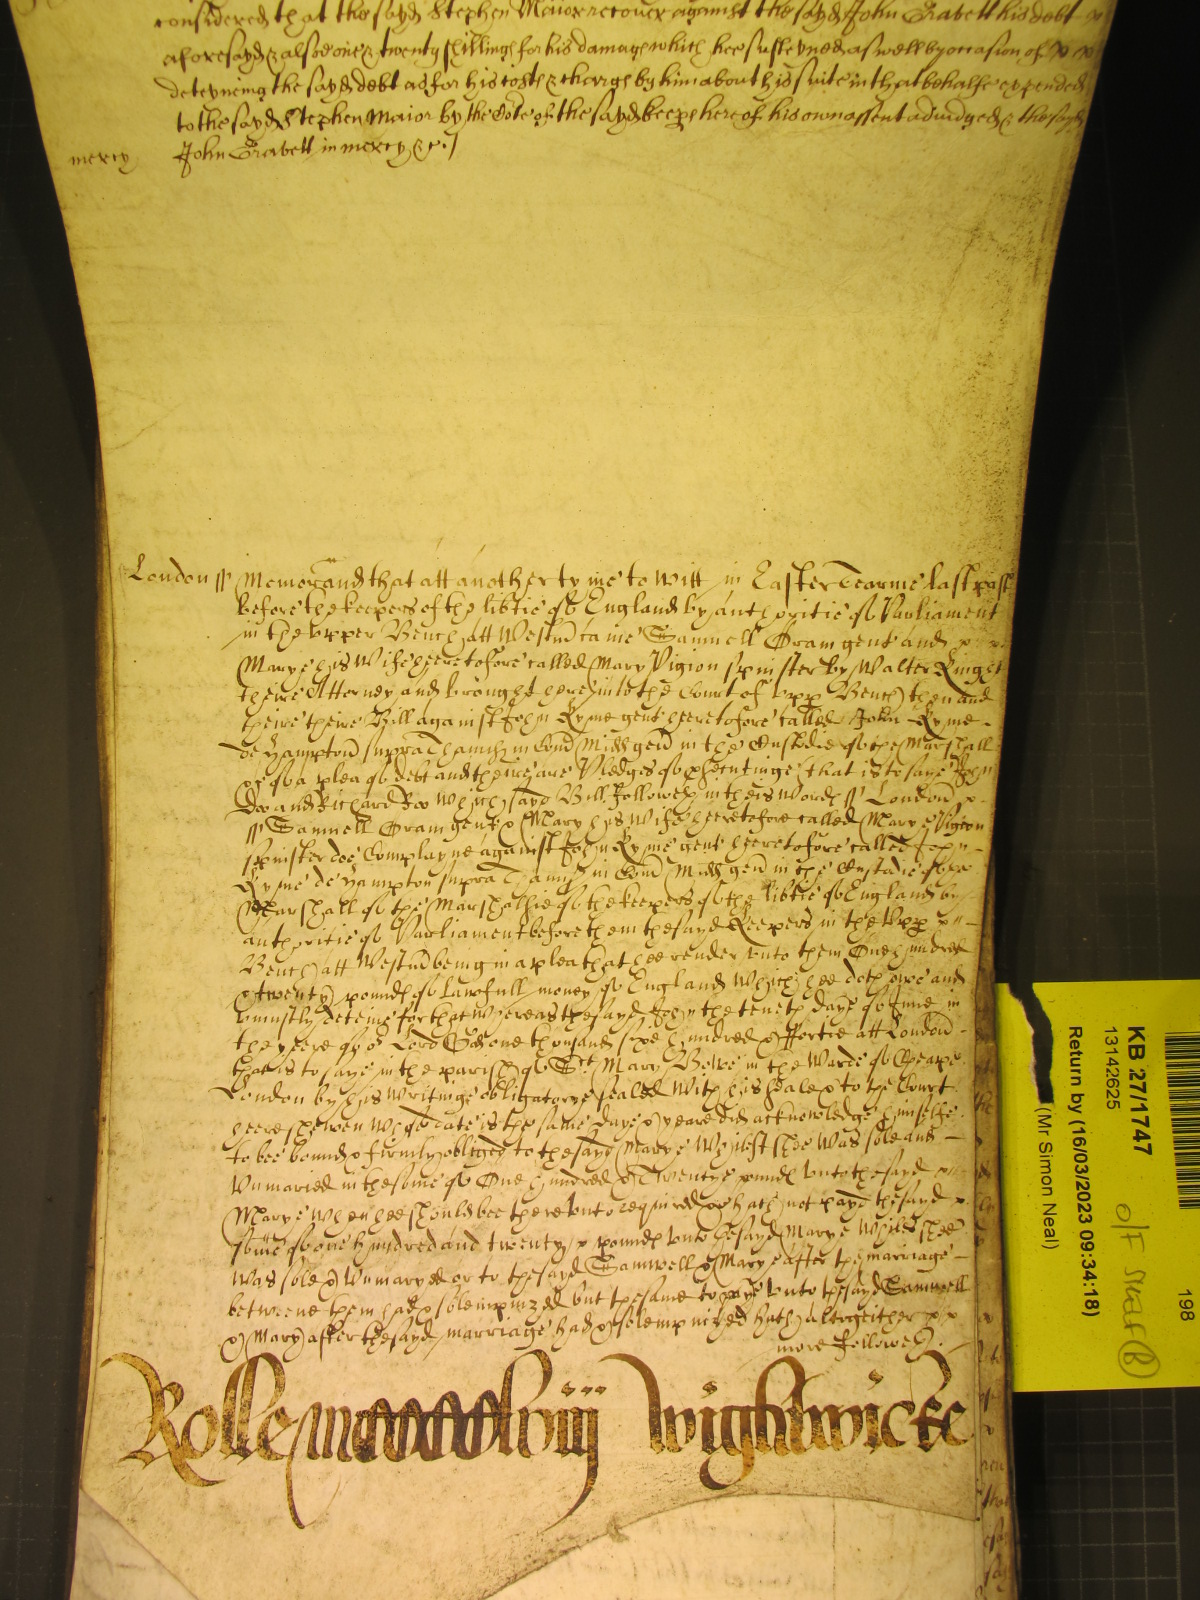 considered that the sayd Stephen Maior recover against the sayd John Gravett his debt
aforesayd & alsoe one & twenty shillings for his damage which hee susteyned aswell by occasion of
deteyneing the sayd debt as for his costs & charge by him about his suite in that behalfe expended
to the sayd Stephen Maior by the Cote of the sayd keeps here of his own assent adiudged & the sayd
mercy John Gravett in mercy &c.
London ss Memorand that att another tyme to witt in Easter Tearme last past
before the keepers of the libtie of England by authoritie of Parliament
in the upper Bench att Westm came Samuell Oram gent and
Marye his Wife heeretofore called Mary Vigion spinster by Walter
theire Attorney and brought heere into the Court of upp Bench then and
theire theire Bill against John Kyme gent heeretofore called John Kyme
de Hampton supra Thamis in Com Midd gen in the Custodie of the Marshall
&c of a plea of debt and theire are Pledges of psecutinge that is to saye John
Doo and Richard Roo Which sayd Bill followeth in theis words ss London
ss Samuell Oram gent & Mary his Wife heeretofore called Marye Vigion
spinster doe Complayne against John Kyme gent heeretofore called John
Kyme de Hampton supra Thamis in Com Midd gen in the Custodie of
Marshall of the Marshalsie of the keepers of the libtie of England by
authoritie of Parliament before them the sayd Keepers in the Upp
Bench att Westm being in a plea that hee render unto them One hundred
& twenty pounds of lawfull money of England Which hee doth owe and
uniustly deteine for that Whereas the sayd John the tenth daye of June in
the yeere of or Lord God one thousand sixe hundred & ffortie att London
that is to saye in the parish of St Mary Bowe in the Warde of Cheape
London by his Writinge obligatorye sealed With his seale & to the Court
heere shewen Whose date is the same daye & yeare did acknowledge himselfe
to bee bound & firmly obliged to the sayd Marye Whilest shee Was sole and
Unmaried in the some of One hundred & Twentye pounds unto the sayd
Marye When hee should bee thereunto required hath not payd the sayd
some of one hundred and twenty pounds unto the sayd Marye Whilest shee
Was sole & Unmaryed or to the sayd Samuell & Marye after the marriage
betweene them had & solempnized but the same to paye unto the sayd Samuell
& Mary after the sayd marriage had & solempnized hath altogeither
more followeth.
Rolle Wightwicke
198
KB 27/1747
13142625
Return by (16/03/2023 09:34:18)
(Mr Simon Neal)